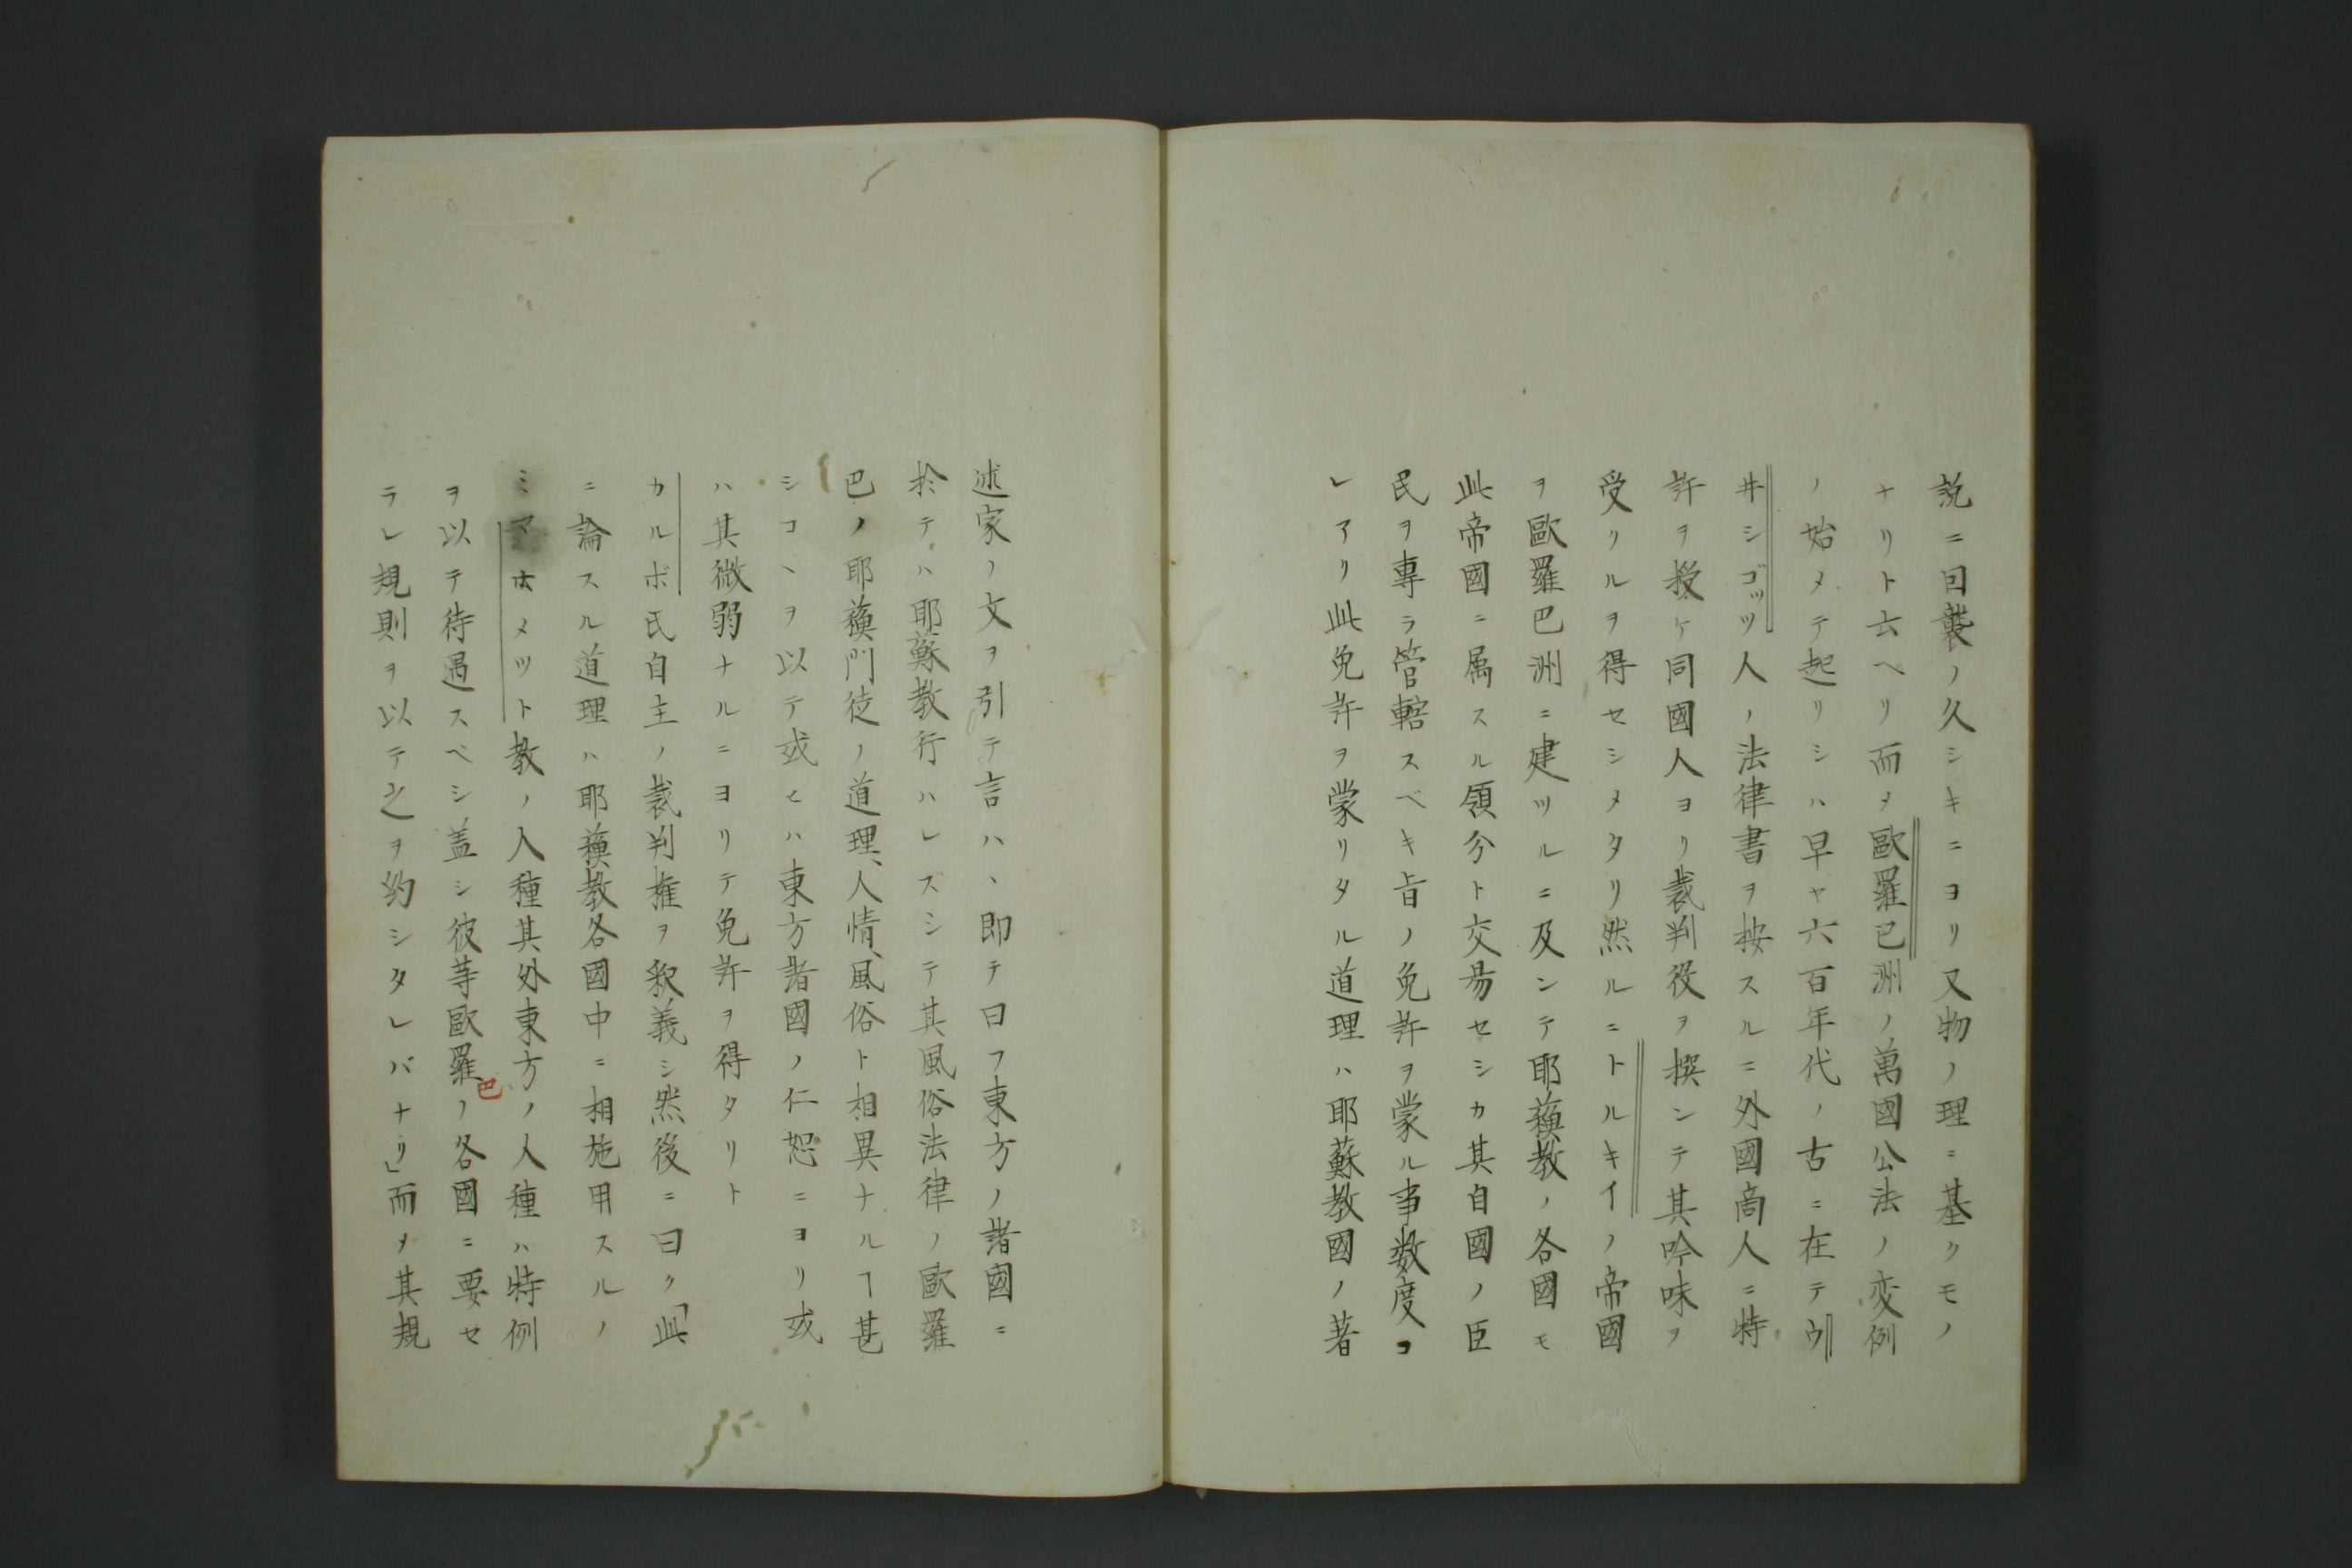 説ニ曰襲ノ久シキニヨリ又物ノ理ニ基クモノ
ナリト云ヘリ而〆歐羅巴洲ノ萬國公法ノ変例
ノ始メテ起リシハ早ヤ六百年代ノ古ニ在テウ
井シゴッツ人ノ法律書ヲ按スルニ外國商人ニ特
許ヲ授ケ同國人ヨリ裁判役ヲ撰ンテ其吟味ヲ
受クルヲ得セシメタリ然ルニトルキイノ帝國
ヲ歐羅巴洲ニ建ツルニ及ンテ耶蘓教ノ各國モ
此帝國ニ属スル領分ト交易セシカ其自國ノ臣
民ヲ專ラ管轄スベキ旨ノ免許ヲ蒙ル事数度コ
レアリ此免許ヲ蒙リタル道理ハ耶蘇教國ノ著
述家ノ文ヲ引テ言ハヽ即テ曰フ東方ノ諸國ニ
於テハ耶蘇教行ハレズシテ其風俗法律ノ歐羅
巴ノ耶蘓門徒ノ道理、人情、風俗ト相異ナルヿ甚
シコヽヲ以テ或ヒハ東方諸國ノ仁恕ニヨリ或
ハ其微弱ナルニヨリテ免許ヲ得タリト
カルボ氏自主ノ裁判権ヲ釈義シ然後ニ曰ク「此
ニ論スル道理ハ耶蘓教各國中ニ相施用スルノ
ミマホメツト教ノ人種其外東方ノ人種ハ特例
ヲ以テ待遇スベシ蓋シ彼等歐羅巴ノ各國ニ要セ
ラレ規則ヲ以テ之ヲ約シタレバナリ」而〆其規